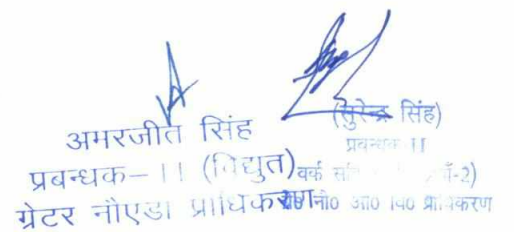 अमरजीत सिंह
प्रबन्धक– II (विद्युत)
ग्रेटर नौएडा प्राधिकरण
(सुरेन्द्र सिंह)
प्रबन्धक-II
वर्क
नौ० प्राधिकरण